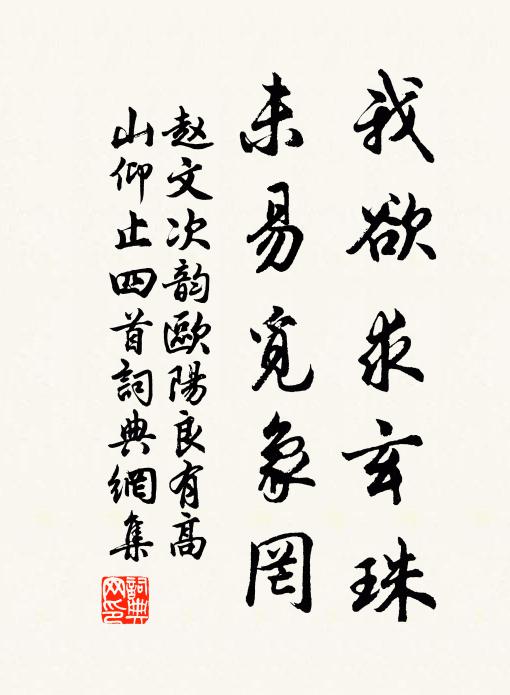 我欲求玄珠
未易覓象罔
赵文次韵歐陽良有高
山仰止四首詞典網集
詞典
网印